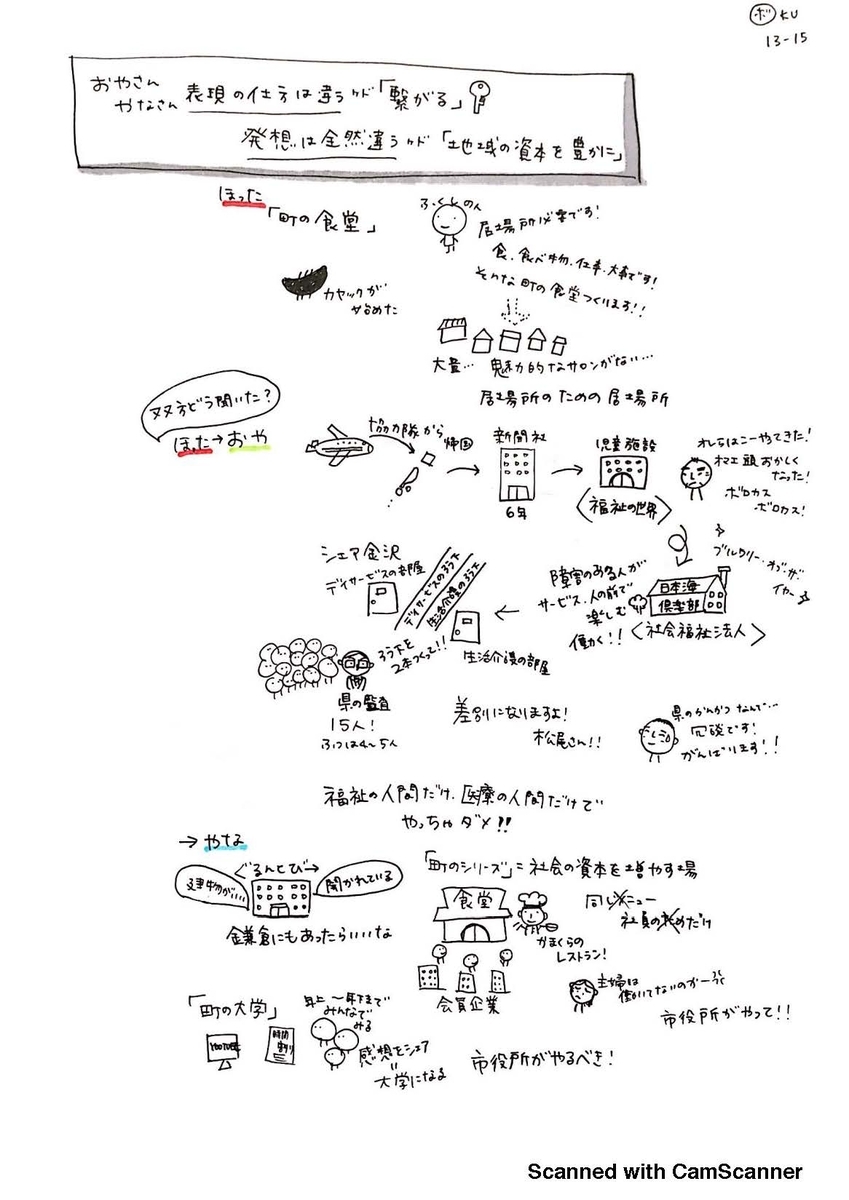 ボ KU
13-15
おやさん
やなさん 表現の仕方は違うけど「繋がる」
発想は全然違うけど「地域の資本を豊かに」
ほった
「町の食堂」
ふくしの人
居場所必要です!
食、食べ物、仕事、大事です!
そんな町の食堂つくります!!
カヤックが
始めた
大量… 魅力的なサロンがない…
居場所のための居場所
双方どう聞いた?
ほった→おや
協力隊から
帰国
新聞社
6年
児童施設
〈福祉の世界〉
オレらはこーやってきた!
オマエ頭おかしく
なった!
ボロカス
ボロカス!
ブルワリー・オブ・ザ・
イヤー
日本海
倶楽部
〈社会福祉法人〉
障害のある人が
サービス、人の前で
楽しむ
働く!!
シェア金沢
デイサービスの部屋
デイサービスのろう下
生活介護のろう下
ろう下を
2本つくって!!
生活介護の部屋
県の監査
15人!
ふつうは4~5人
差別になりますよ!
松尾さん!!
県のかんかつなんで…
冗談です!
がんばります!!
福祉の人間だけ、医療の人間だけで
やっちゃダメ!!
→やな
ぐるんとび→
建物が…
開かれている
鎌倉にもあったらいいな
「町のシリーズ」=社会の資本を増やす場
食堂
かまくらの
レストラン!
同じメニュー
社員の為めだけ
会員企業
主婦は
働いてないのかーうぅ
市役所がやって!!
「町の大学」
YOUTUBE
時間
割り
年上~年下まで
みんなで
みる
感想をシェア
=
大学になる
市役所がやるべき!
Scanned with CamScanner